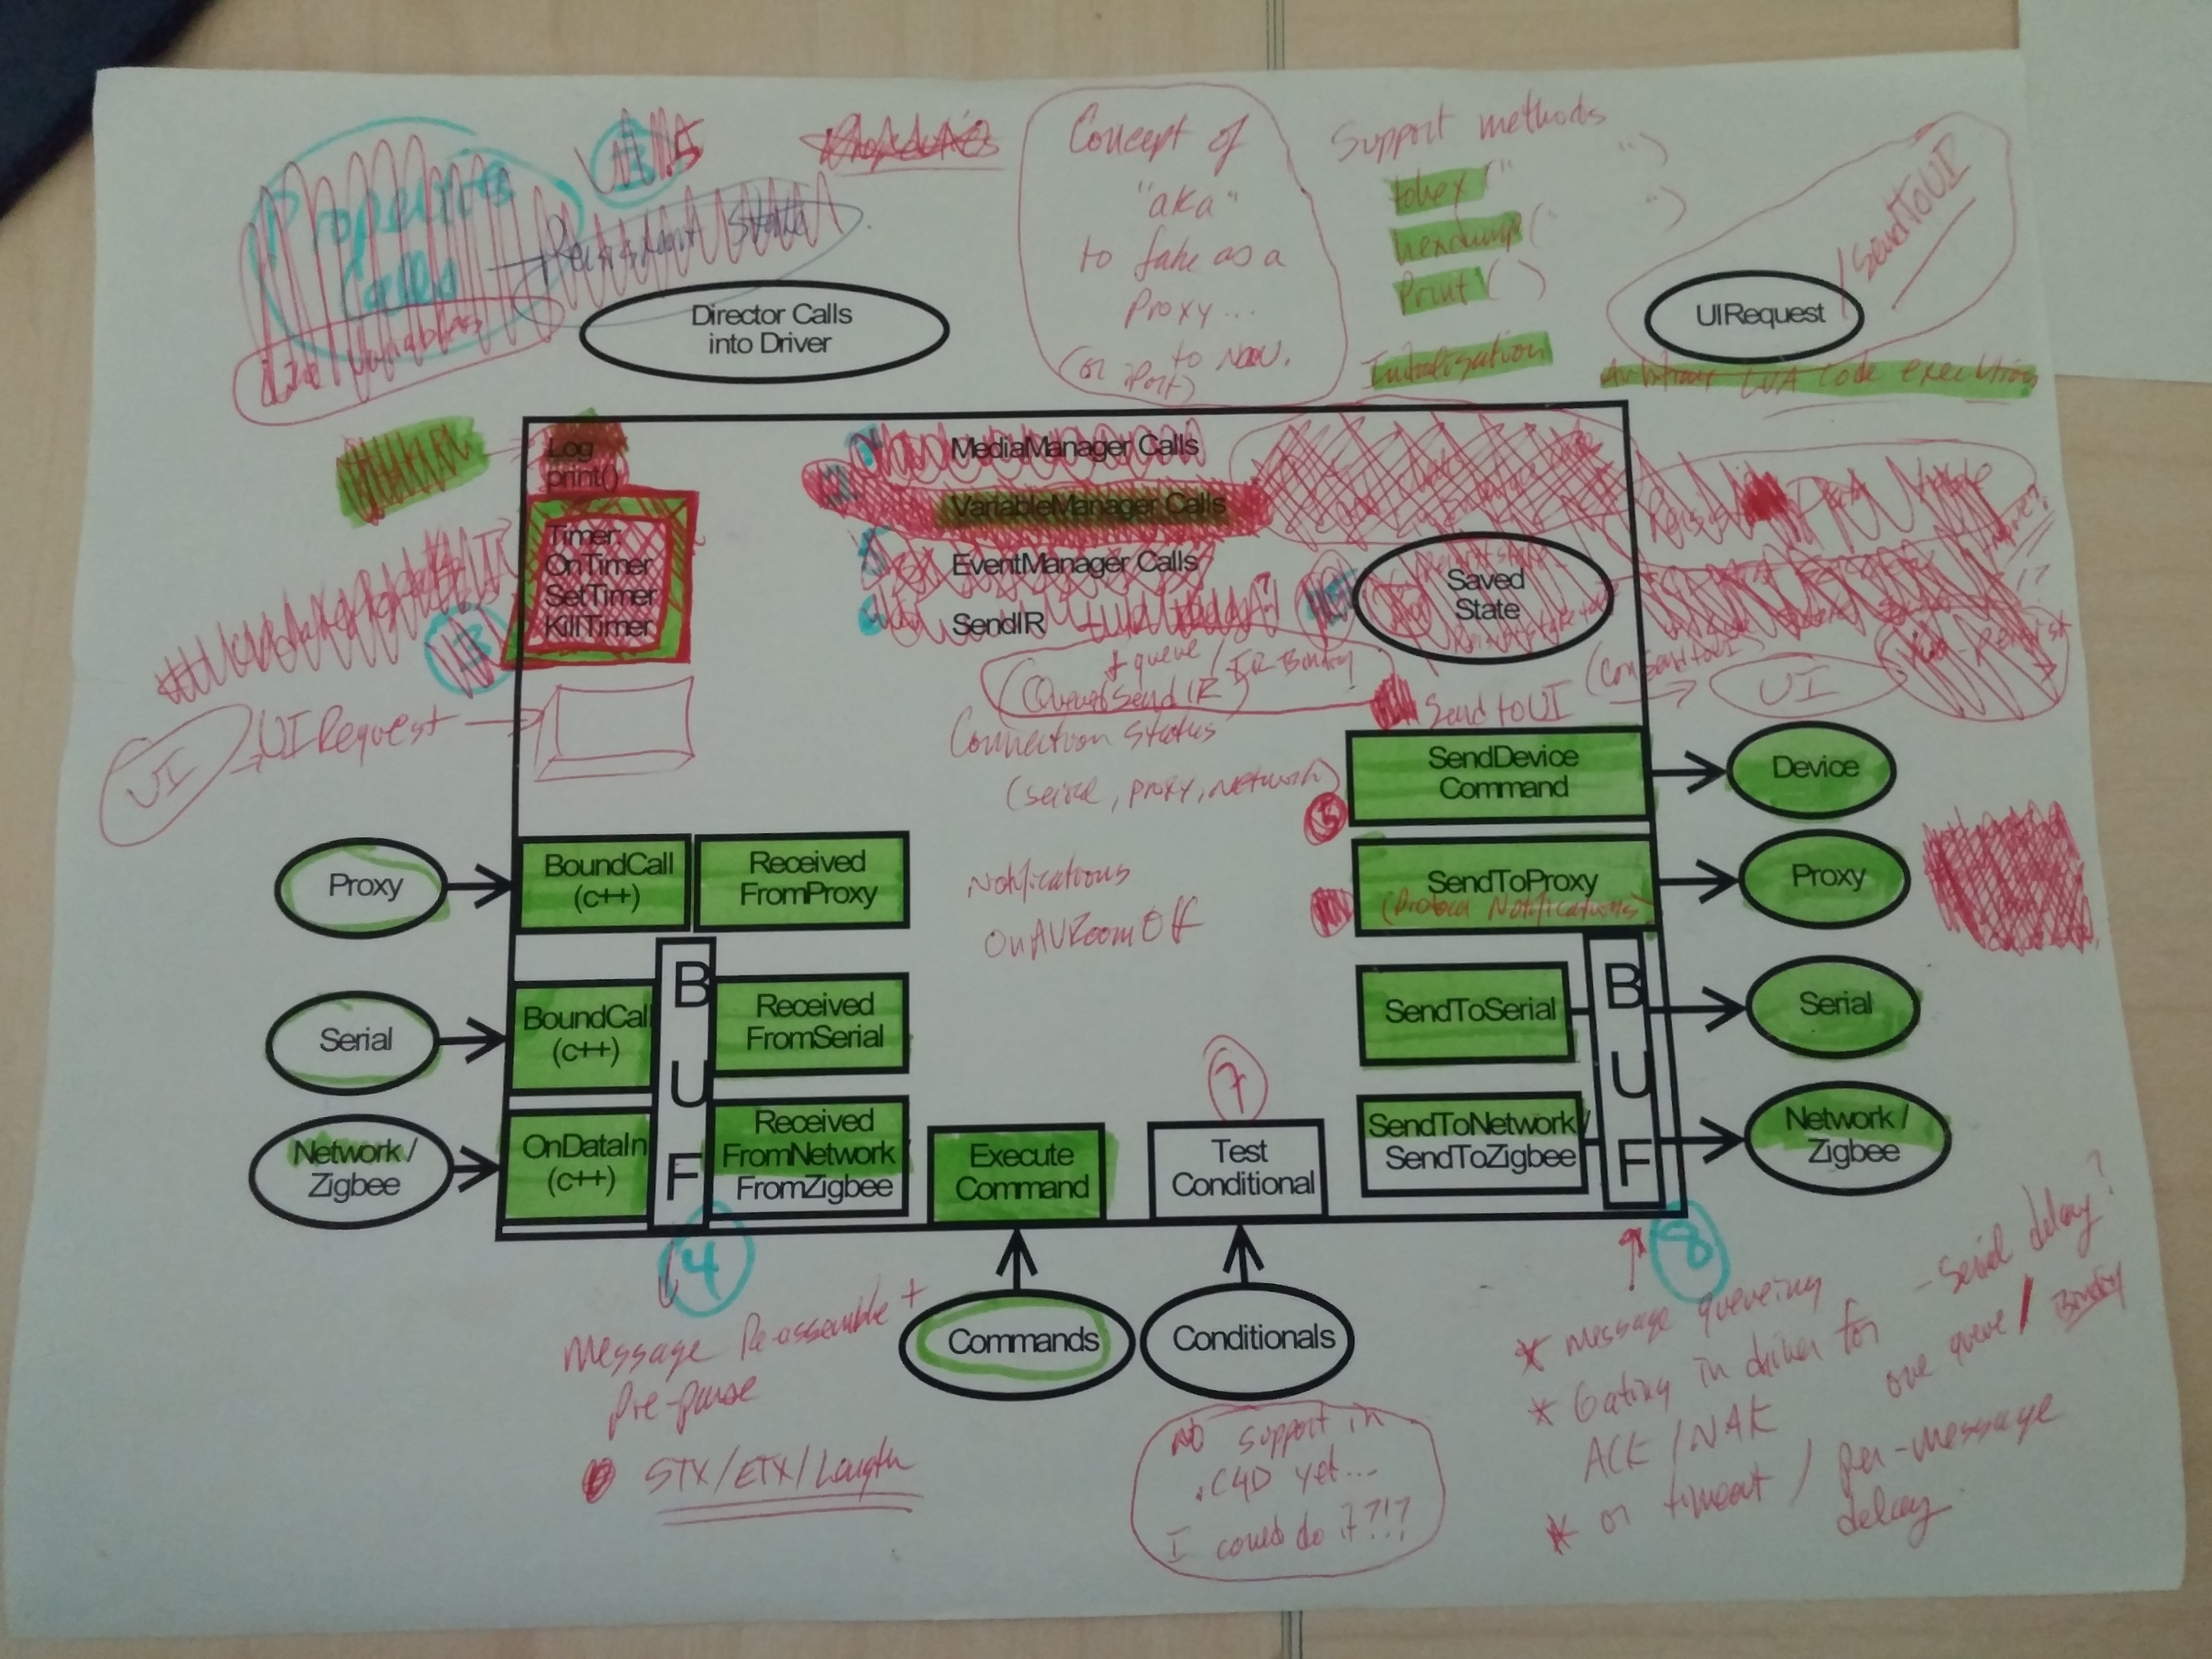 Properties
Calls
5
Persistent State
Variables
Concept of
"aka"
to fake as a
Proxy...
(or to New.
Port)
Support methods
tohex(" ")
hexdump(" ")
Print( )
Initialisation
/SendToUI
UIRequest
Arbitrary LUA code execution
Director Calls
into Driver
Log
print()
Timer:
OnTimer
SetTimer
KillTimer
MediaManager Calls
VariableManager Calls
EventManager Calls
SendIR
+ queue / IR Binding
(Queued Send IR)
Saved
State
UI
UIRequest
Connection Status
(serial, proxy, network)
Send to UI
UI
SendDevice
Command
Device
5
Proxy
BoundCall
(c++)
Received
FromProxy
Notifications
OnAVRoomOff
SendToProxy
(Protocol Notifications)
Proxy
Serial
BoundCall
(c++)
BUF
Received
FromSerial
SendToSerial
BUF
Serial
Network /
Zigbee
OnDataIn
(c++)
Received
FromNetwork
FromZigbee
Execute
Command
7
Test
Conditional
SendToNetwork/
SendToZigbee
Network /
Zigbee
4
8
Message Re-assemble +
Pre-parse
STX/ETX/Length
Commands
Conditionals
No support in
.C4D yet...
I could do it?!?
* message queueing
- Serial delay?
* Gating in driver for
ACK / NAK
one queue / Binding
* or timeout / per-message
delay